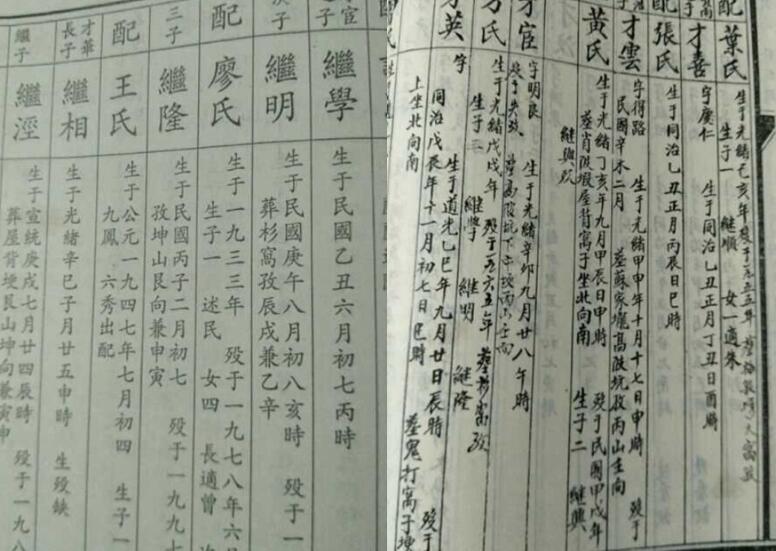 配 葉氏 生于光緒己亥年
生子一 繼順 女一適朱
才善 字廣仁 生于同治乙丑正月丁丑日酉時
配 張氏 生于同治乙丑正月丙辰日巳時
才雲 字得路 生于光緒甲申年十月十七日申時 歿于
民國辛未二月 葬蘇家壠高陂坑孜丙山壬向
黃氏 生于光緒丁亥年九月甲辰日申時 歿于民國甲戌年
葬肖陂塅屋背窩子坐北向南 生子二 繼興
才宦 字明良 生于光緒辛卯九月廿八午時
歿于失孜
方氏 生于光緒戊戌年 歿于一九六五年
生子三 繼學 繼明 繼隆
才英 字 生于道光乙巳年九月廿日辰時 歿于
同治戊辰年十一月初七日巳時 葬鬼打窩子埂
上坐北向南
繼學 生于民國乙丑六月初七丙時
繼明 生于民國庚午八月初八亥時 歿于一
葬杉窩孜辰戌兼乙辛
配 廖氏 生于一九三三年 歿于一九七八年六
生子一 述民 女四 長適曾
三子 繼隆 生于民國丙子二月初七 歿于一九九七
孜坤山艮向兼申寅
配 王氏 生于公元一九四七年七月初四 生子一
九鳳 六秀出配
才華長子 繼相 生于光緒辛巳子月廿五申時 生歿缺
繼子 繼涇 生于宣統庚戌七月廿四辰時 歿于一九八
葬屋背埂艮山坤向兼寅申